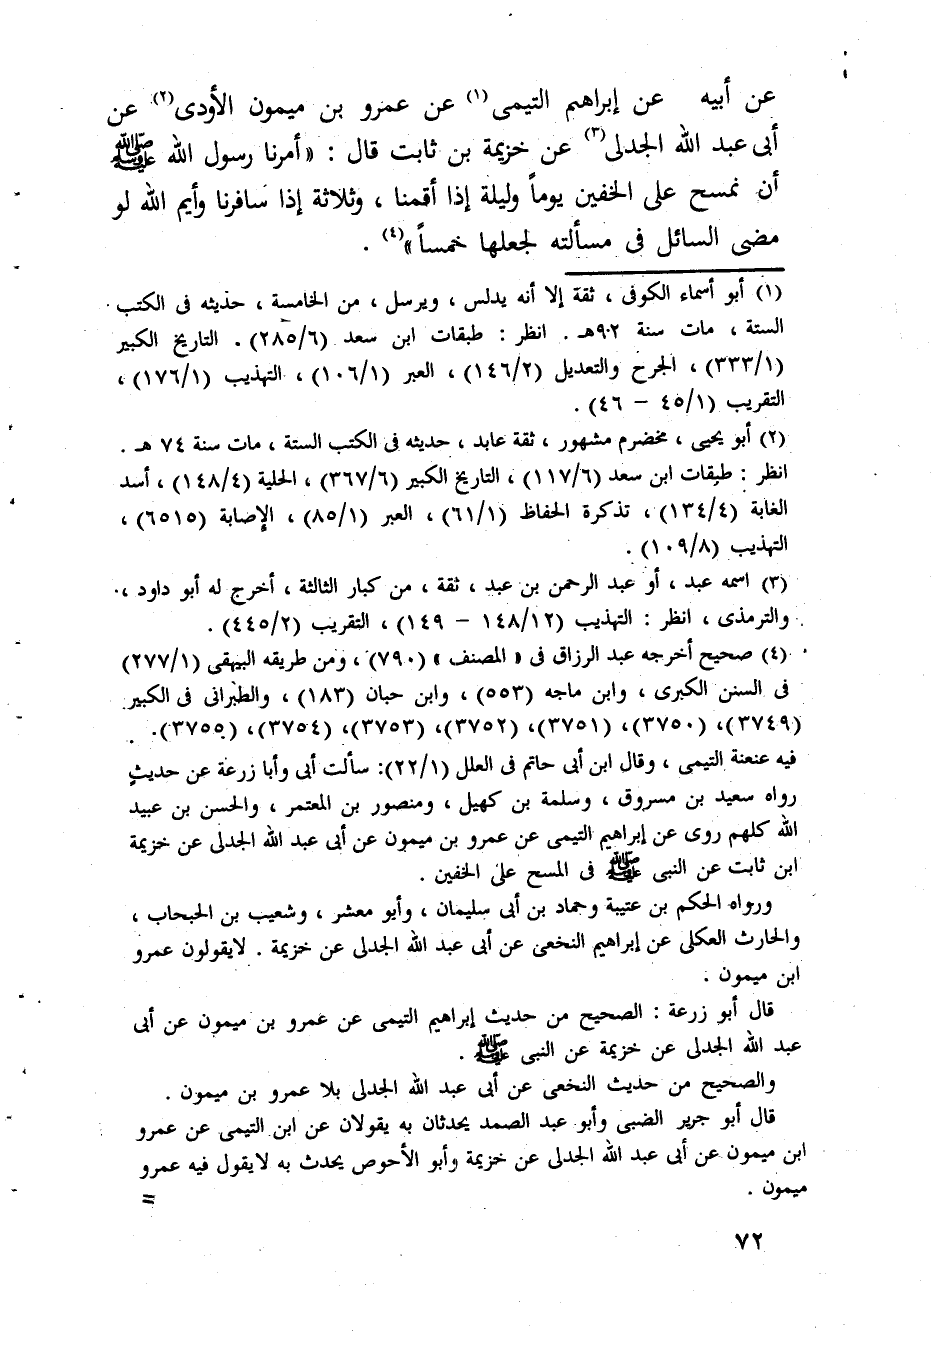 عن أبيه عن إبراهيم التيمى(١) عن عمرو بن ميمون الأودى(٢) عن
أبى عبد الله الجدلى(٣) عن خزيمة بن ثابت قال : « أمرنا رسول الله ﷺ
أن نمسح على الخفين يوماً وليلة إذا أقمنا ، وثلاثة إذا سافرنا وأيم الله لو
مضى السائل فى مسألته لجعلها خمساً »(٤) .
(١) أبو أسماء الكوفى ، ثقة إلا أنه يدلس ، ويرسل ، من الخامسة ، حديثه فى الكتب
الستة ، مات سنة ٩٠٢هـ . انظر : طبقات ابن سعد (٢٨٥/٦) . التاريخ الكبير
(٣٣٣/١) ، الجرح والتعديل (١٤٦/٢) ، العبر (١٠٦/١) ، التهذيب (١٧٦/١) ،
التقريب (٤٥/١ – ٤٦) .
(٢) أبو يحيى ، مخضرم مشهور ، ثقة عابد ، حديثه فى الكتب الستة ، مات سنة ٧٤ هـ .
انظر : طبقات ابن سعد (١١٧/٦) ، التاريخ الكبير (٣٦٧/٦) ، الحلية (١٤٨/٤) ، أسد
الغابة (١٣٤/٤) ، تذكرة الحفاظ (٦١/١) ، العبر (٨٥/١) ، الإصابة (٦٥١٥) ،
التهذيب (١٠٩/٨) .
(٣) اسمه عبد ، أو عبد الرحمن بن عبد ، ثقة ، من كبار الثالثة ، أخرج له أبو داود ،
والترمذى ، انظر : التهذيب (١٤٨/١٢ – ١٤٩) ، التقريب (٤٤٥/٢) .
(٤) صحيح أخرجه عبد الرزاق فى « المصنف » (٧٩٠) ، ومن طريقه البيهقى (٢٧٧/١)
فى السنن الكبرى ، وابن ماجه (٥٥٣) ، وابن حبان (١٨٣) ، والطبرانى فى الكبير
(٣٧٤٩)، (٣٧٥٠)، (٣٧٥١)، (٣٧٥٢)، (٣٧٥٣)، (٣٧٥٤)، (٣٧٥٥).
فيه عنعنة التيمى ، وقال ابن أبى حاتم فى العلل (٢٢/١): سألت أبى وأبا زرعة عن حديث
رواه سعيد بن مسروق ، وسلمة بن كهيل ، ومنصور بن المعتمر ، والحسن بن عبيد
الله كلهم روى عن إبراهيم التيمى عن عمرو بن ميمون عن أبى عبد الله الجدلى عن خزيمة
ابن ثابت عن النبى ﷺ فى المسح على الخفين .
ورواه الحكم بن عتيبة وحماد بن أبى سليمان ، وأبو معشر ، وشعيب بن الحبحاب ،
والحارث العكلى عن إبراهيم النخعى عن أبى عبد الله الجدلى عن خزيمة . لايقولون عمرو
ابن ميمون .
قال أبو زرعة : الصحيح من حديث إبراهيم التيمى عن عمرو بن ميمون عن أبى
عبد الله الجدلى عن خزيمة عن النبى ﷺ .
والصحيح من حديث النخعى عن أبى عبد الله الجدلى بلا عمرو بن ميمون .
قال أبو جرير الضبى وأبو عبد الصمد يحدثان به يقولان عن ابن التيمى عن عمرو
ابن ميمون عن أبى عبد الله الجدلى عن خزيمة وأبو الأحوص يحدث به لايقول فيه عمرو
ميمون .
=
٧٢